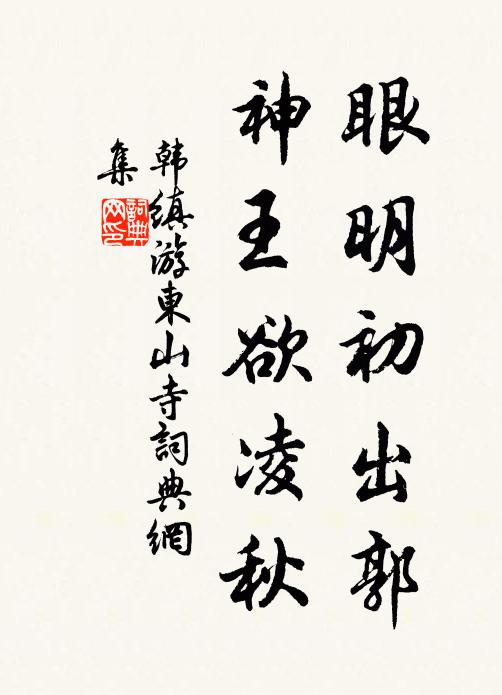 眼明初出郭
神王欲凌秋
韩縝游東山寺詞典網
集
詞典网印